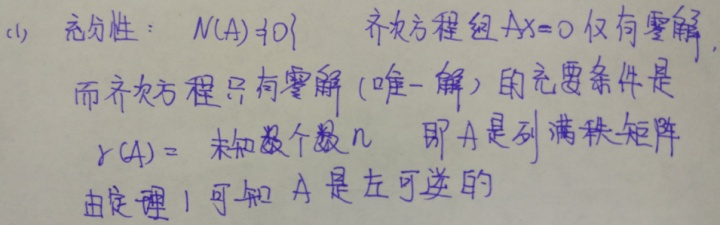 (1) 充分性： N(A)={0} 齐次方程组Ax=0仅有零解,
而齐次方程只有零解（唯一解）的充要条件是
r(A)= 未知数个数n 即A是列满秩矩阵
由定理1可知 A是左可逆的